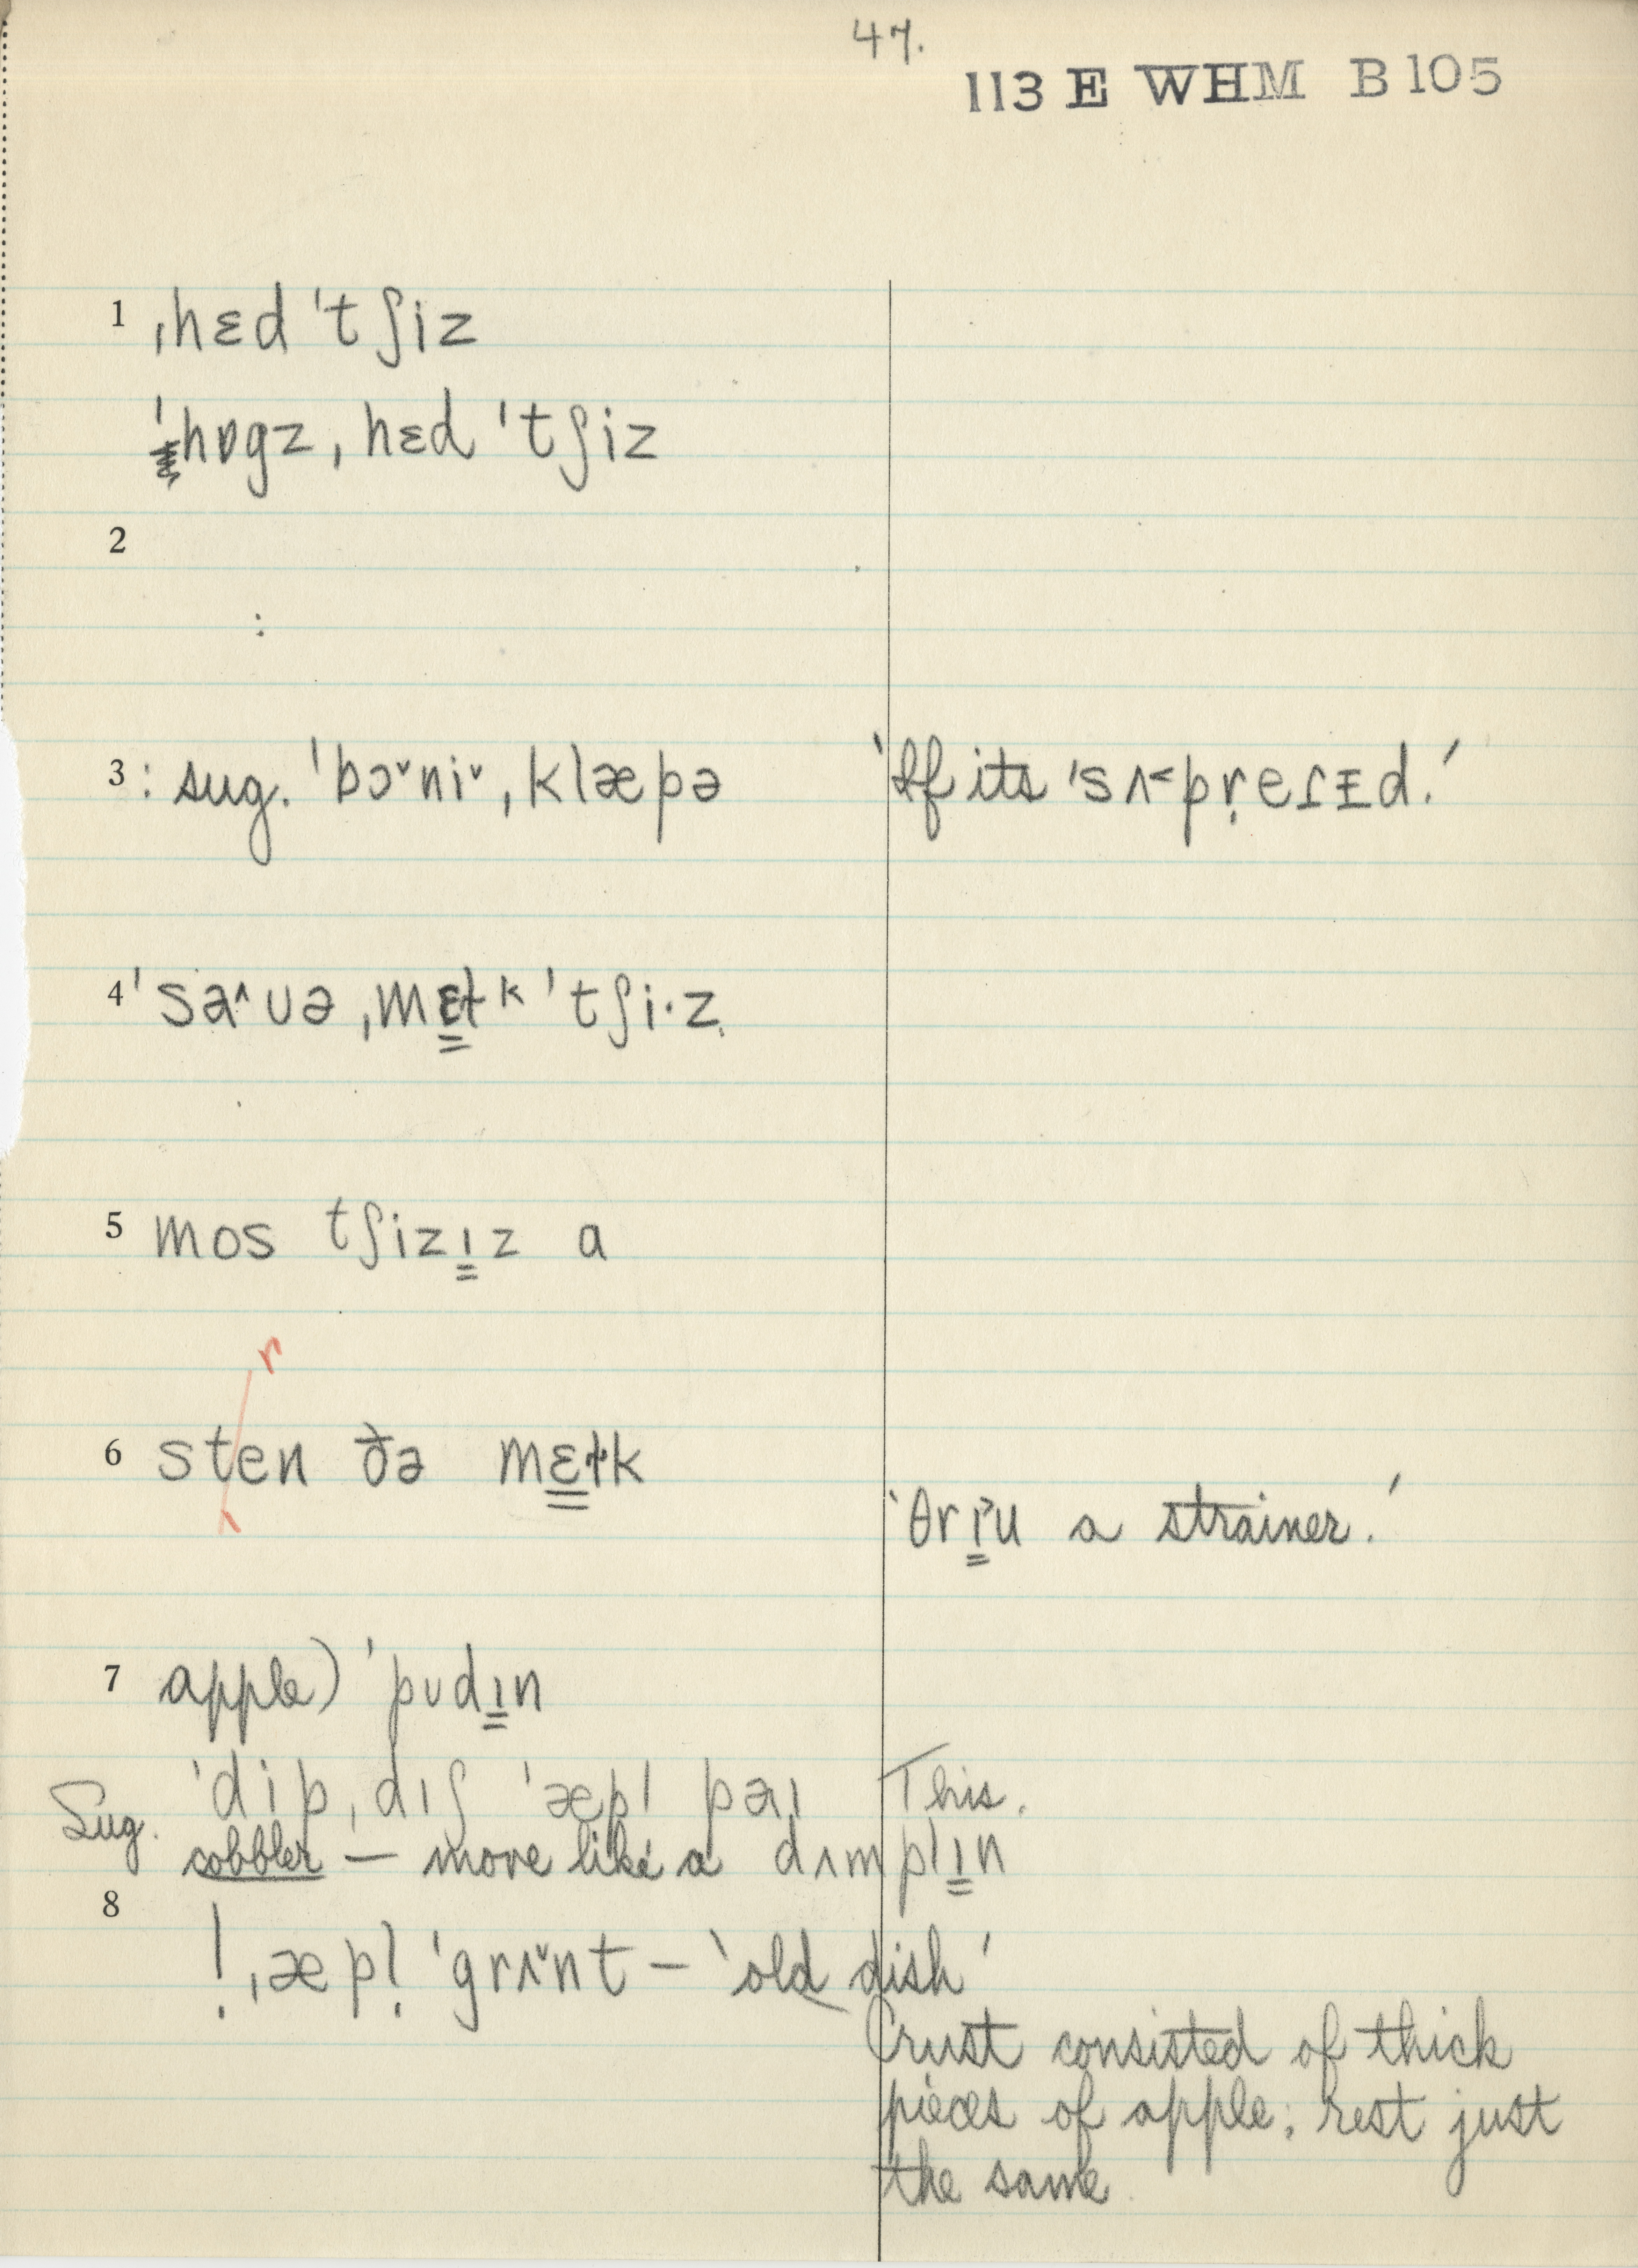 47.
113 E WHM B 105
1 ˌhɛd ˈtʃiz
ˈhɒgz ˌhɛd ˈtʃiz
2
:
3 : sug. ˈbɔ˅ni˅ ˌklæpə 'If its ˈsʌ˂pṛeɪsɪ̵d.'
4 ˈsə˄ʊə ˌmɛ̳ɫk ˈtʃi·z
5 mos tʃizɪ̳z a
r
6 sten ðə mɛ̳ɫk
'θrɪ̳˃u a strainer.'
7 apple) ˈpʊdɪ̳n
Sug. ˈdip ˌdɪʃ ˈæpl pəɪ This.
cobbler – more like a dʌmplɪ̳n
8
! ˌæpl̩ ˈgrʌ˅nt – 'old dish'
Crust consisted of thick
pieces of apple; rest just
the same.